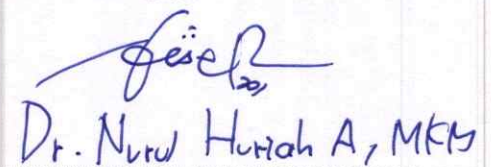 Dr. Nurul Huriah A, MKM